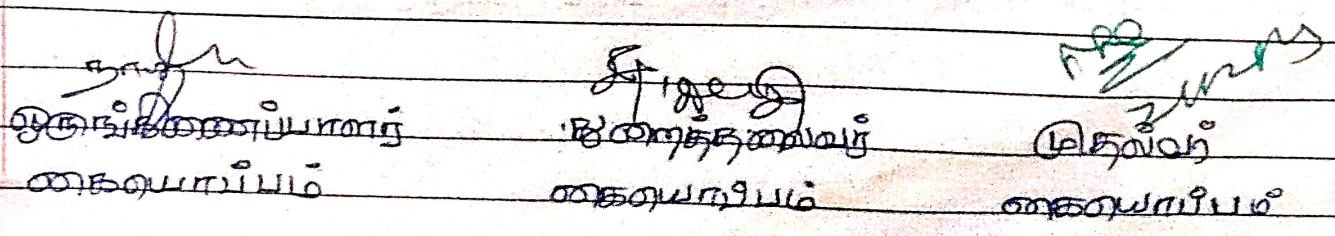 ஒருங்கிணைப்பாளர் துறைத்தலைவர் முதல்வர்
கையொப்பம் கையொப்பம் கையொப்பம்